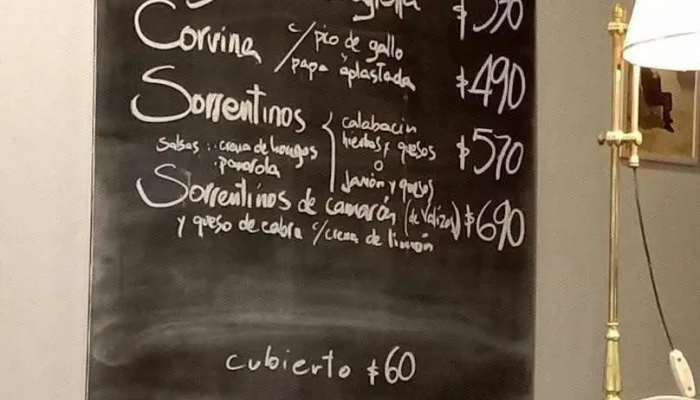 $570
Corvina c/pico de gallo
y
papa aplastada $490
Sorrentinos calabacin
hierbas y quesos $570
o
Jamón y quesos
Salsas: crema de hongos
parorola
Sorrentinos de camarón (de Valizas) $690
y queso de cabra c/crema de limón
cubierto $60